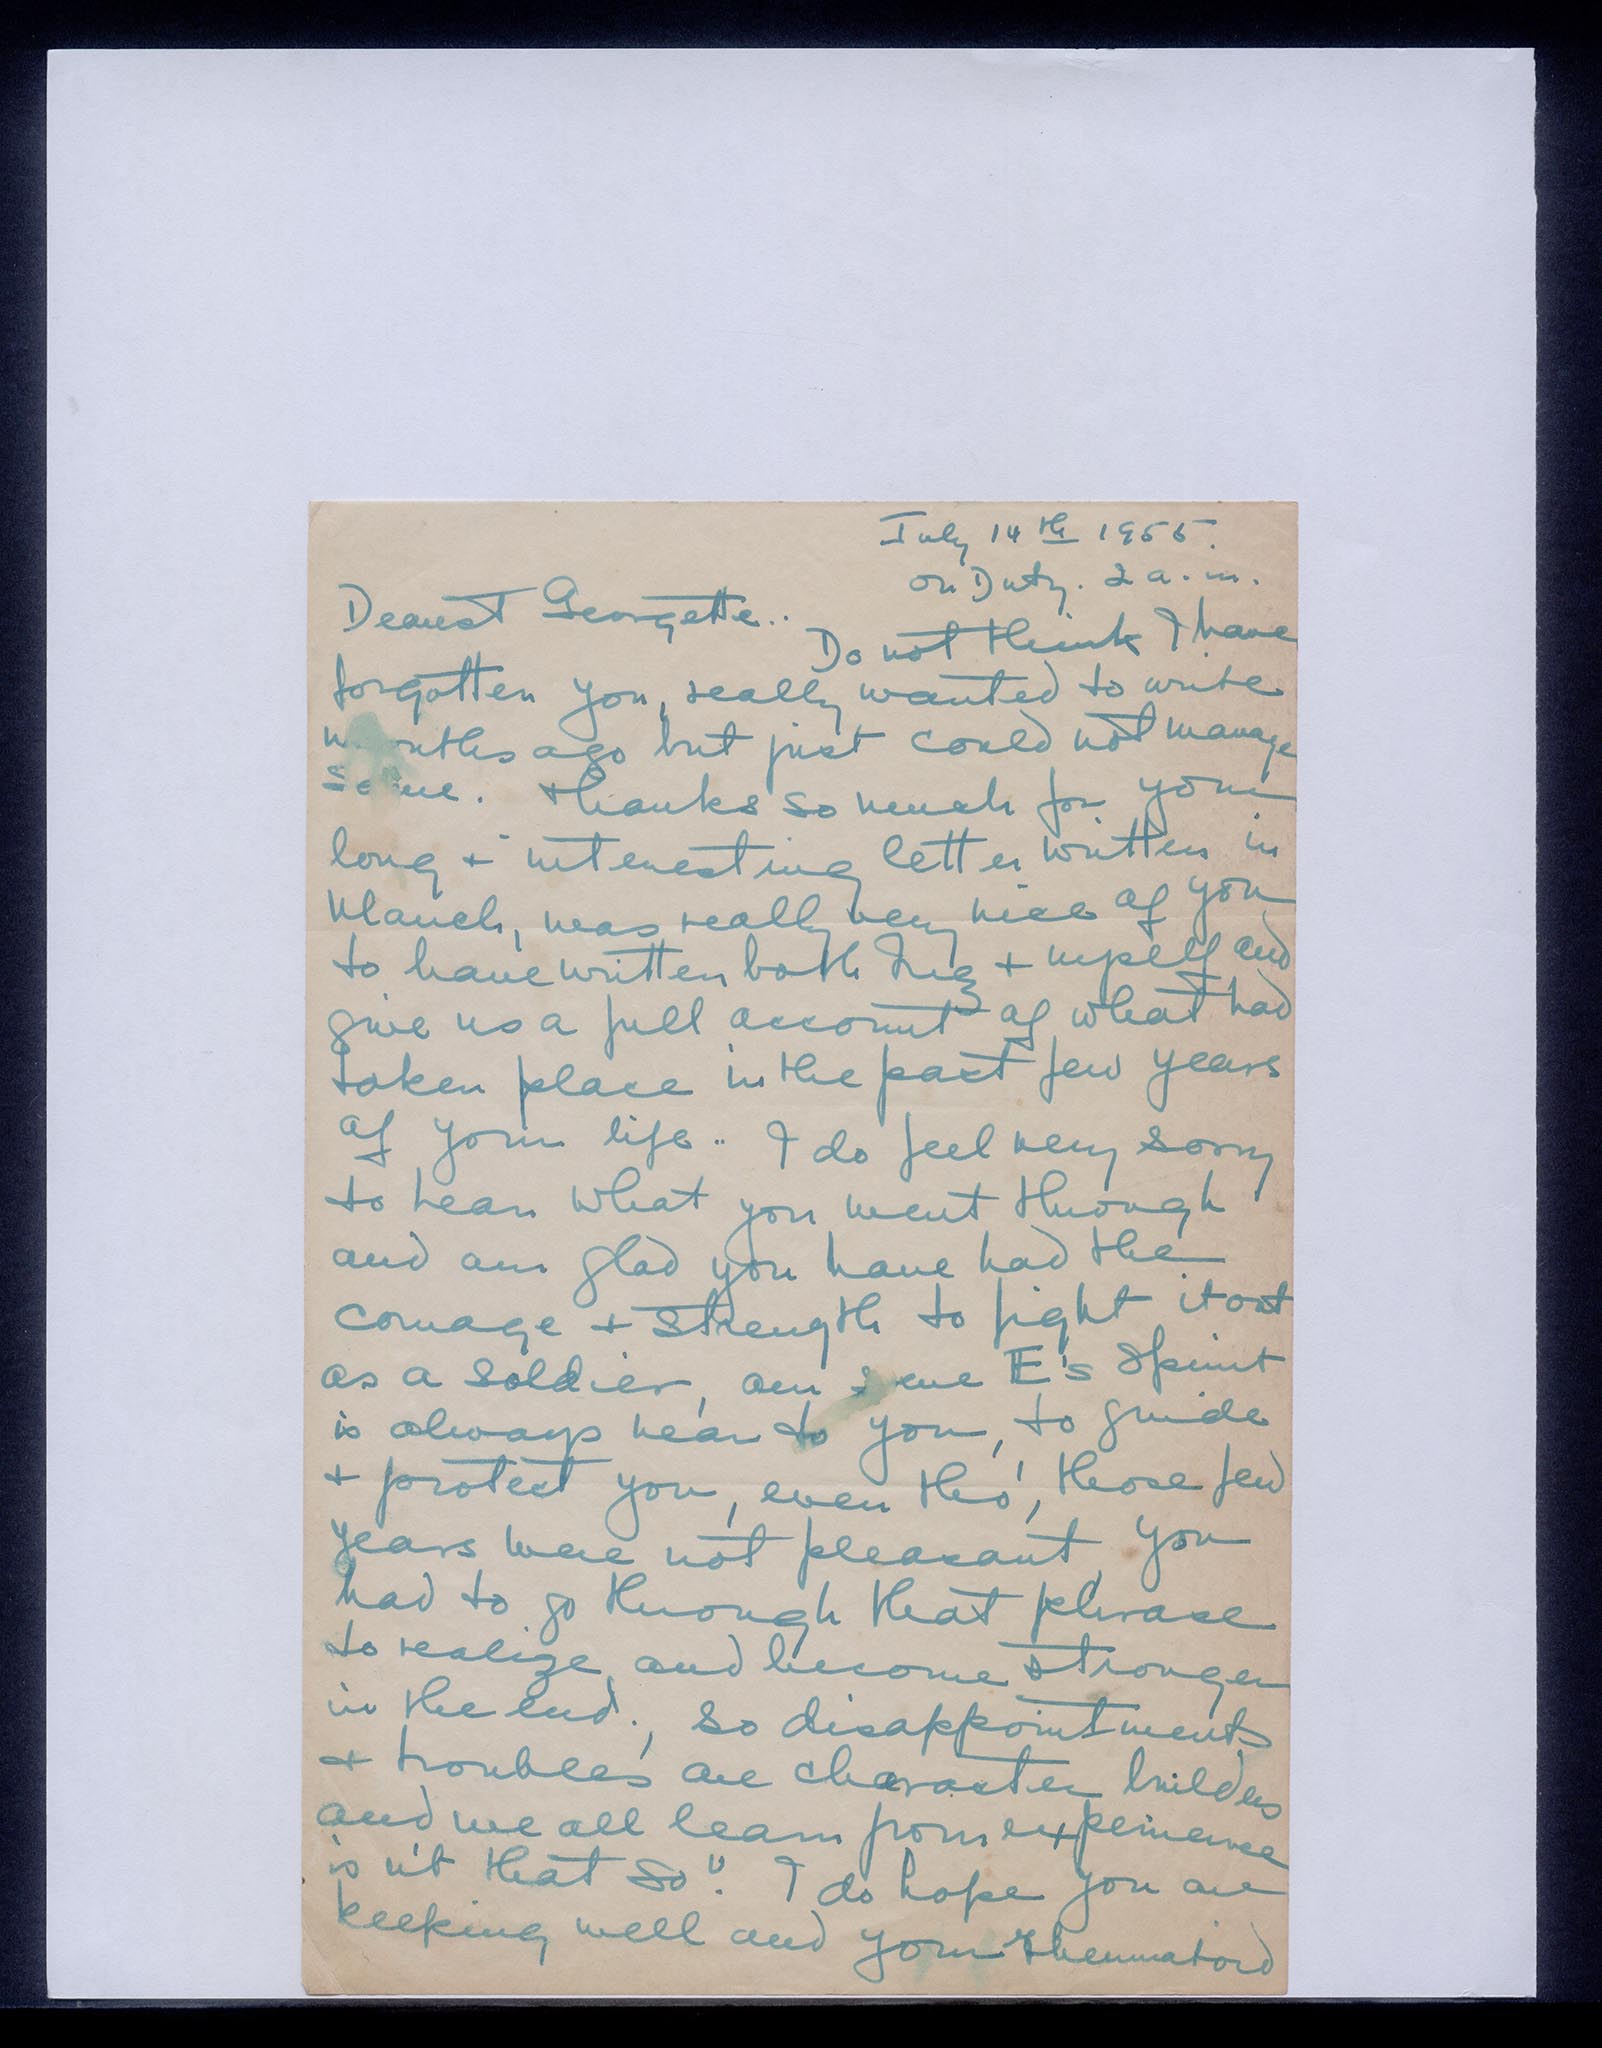 July 14th 1955.
on Duty. 2 a.m.
Dearest Georgette..
Do not think I have
forgotten you, really wanted to write
months ago but just could not manage
same. thanks so much for your
long + interesting letter written in
March, was really very nice of you
to have written both + myself and
give us a full account of what had
taken place in the past few years
of your life.. I do feel very sorry
to hear what you went through
and am glad you have had the
courage + strength to fight it out
as a soldier, am sure E's Spirit
is always near to you, to guide
+ protect you, even tho', those few
years were not pleasant, you
had to go through that phrase
to realize and become stronger
in the end., so disappointments
+ troubles are character builders
and we all learn from experience
is n't that so". I do hope you are
keeping well and your rheumatoid